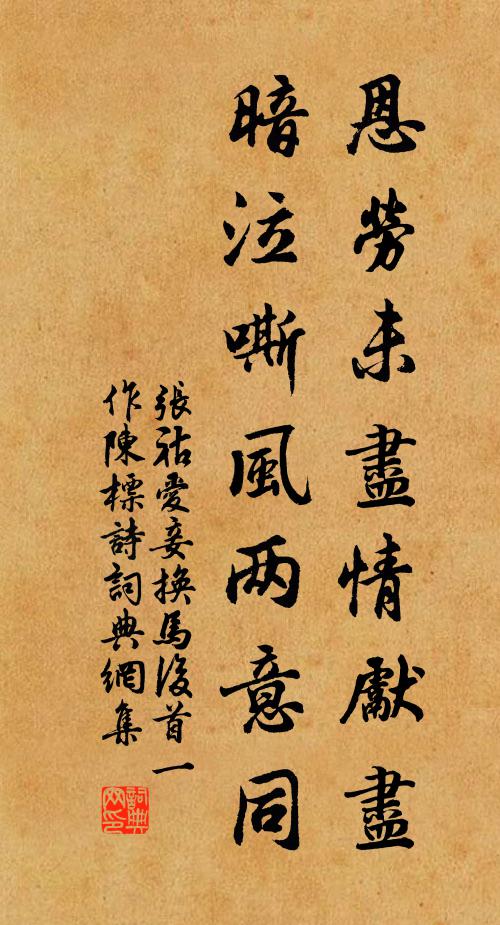 恩勞未盡情獻盡
暗泣嘶風两意同
張祜愛妾換馬後首一
作陳標詩詞典網集
詞典网印